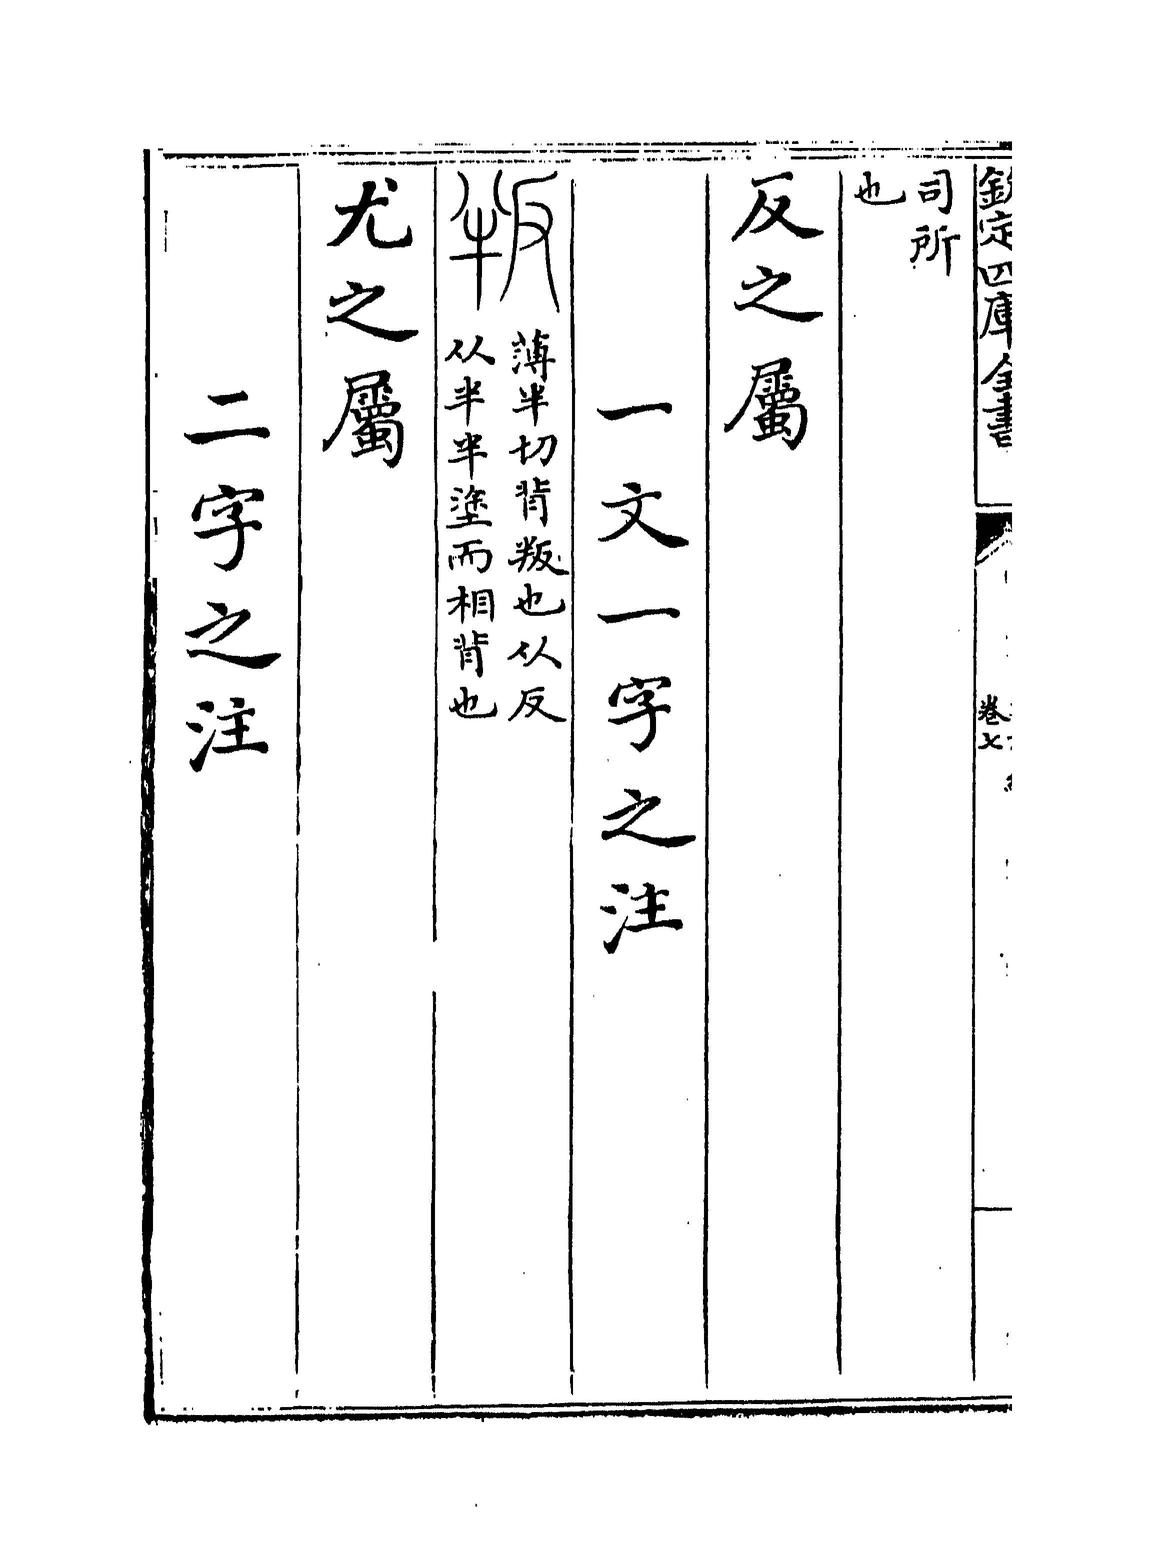 欽定四庫全書
卷七
司所
也
反之屬
一文一字之注
薄半切背叛也从反
从半半塗而相背也
尤之屬
二字之注